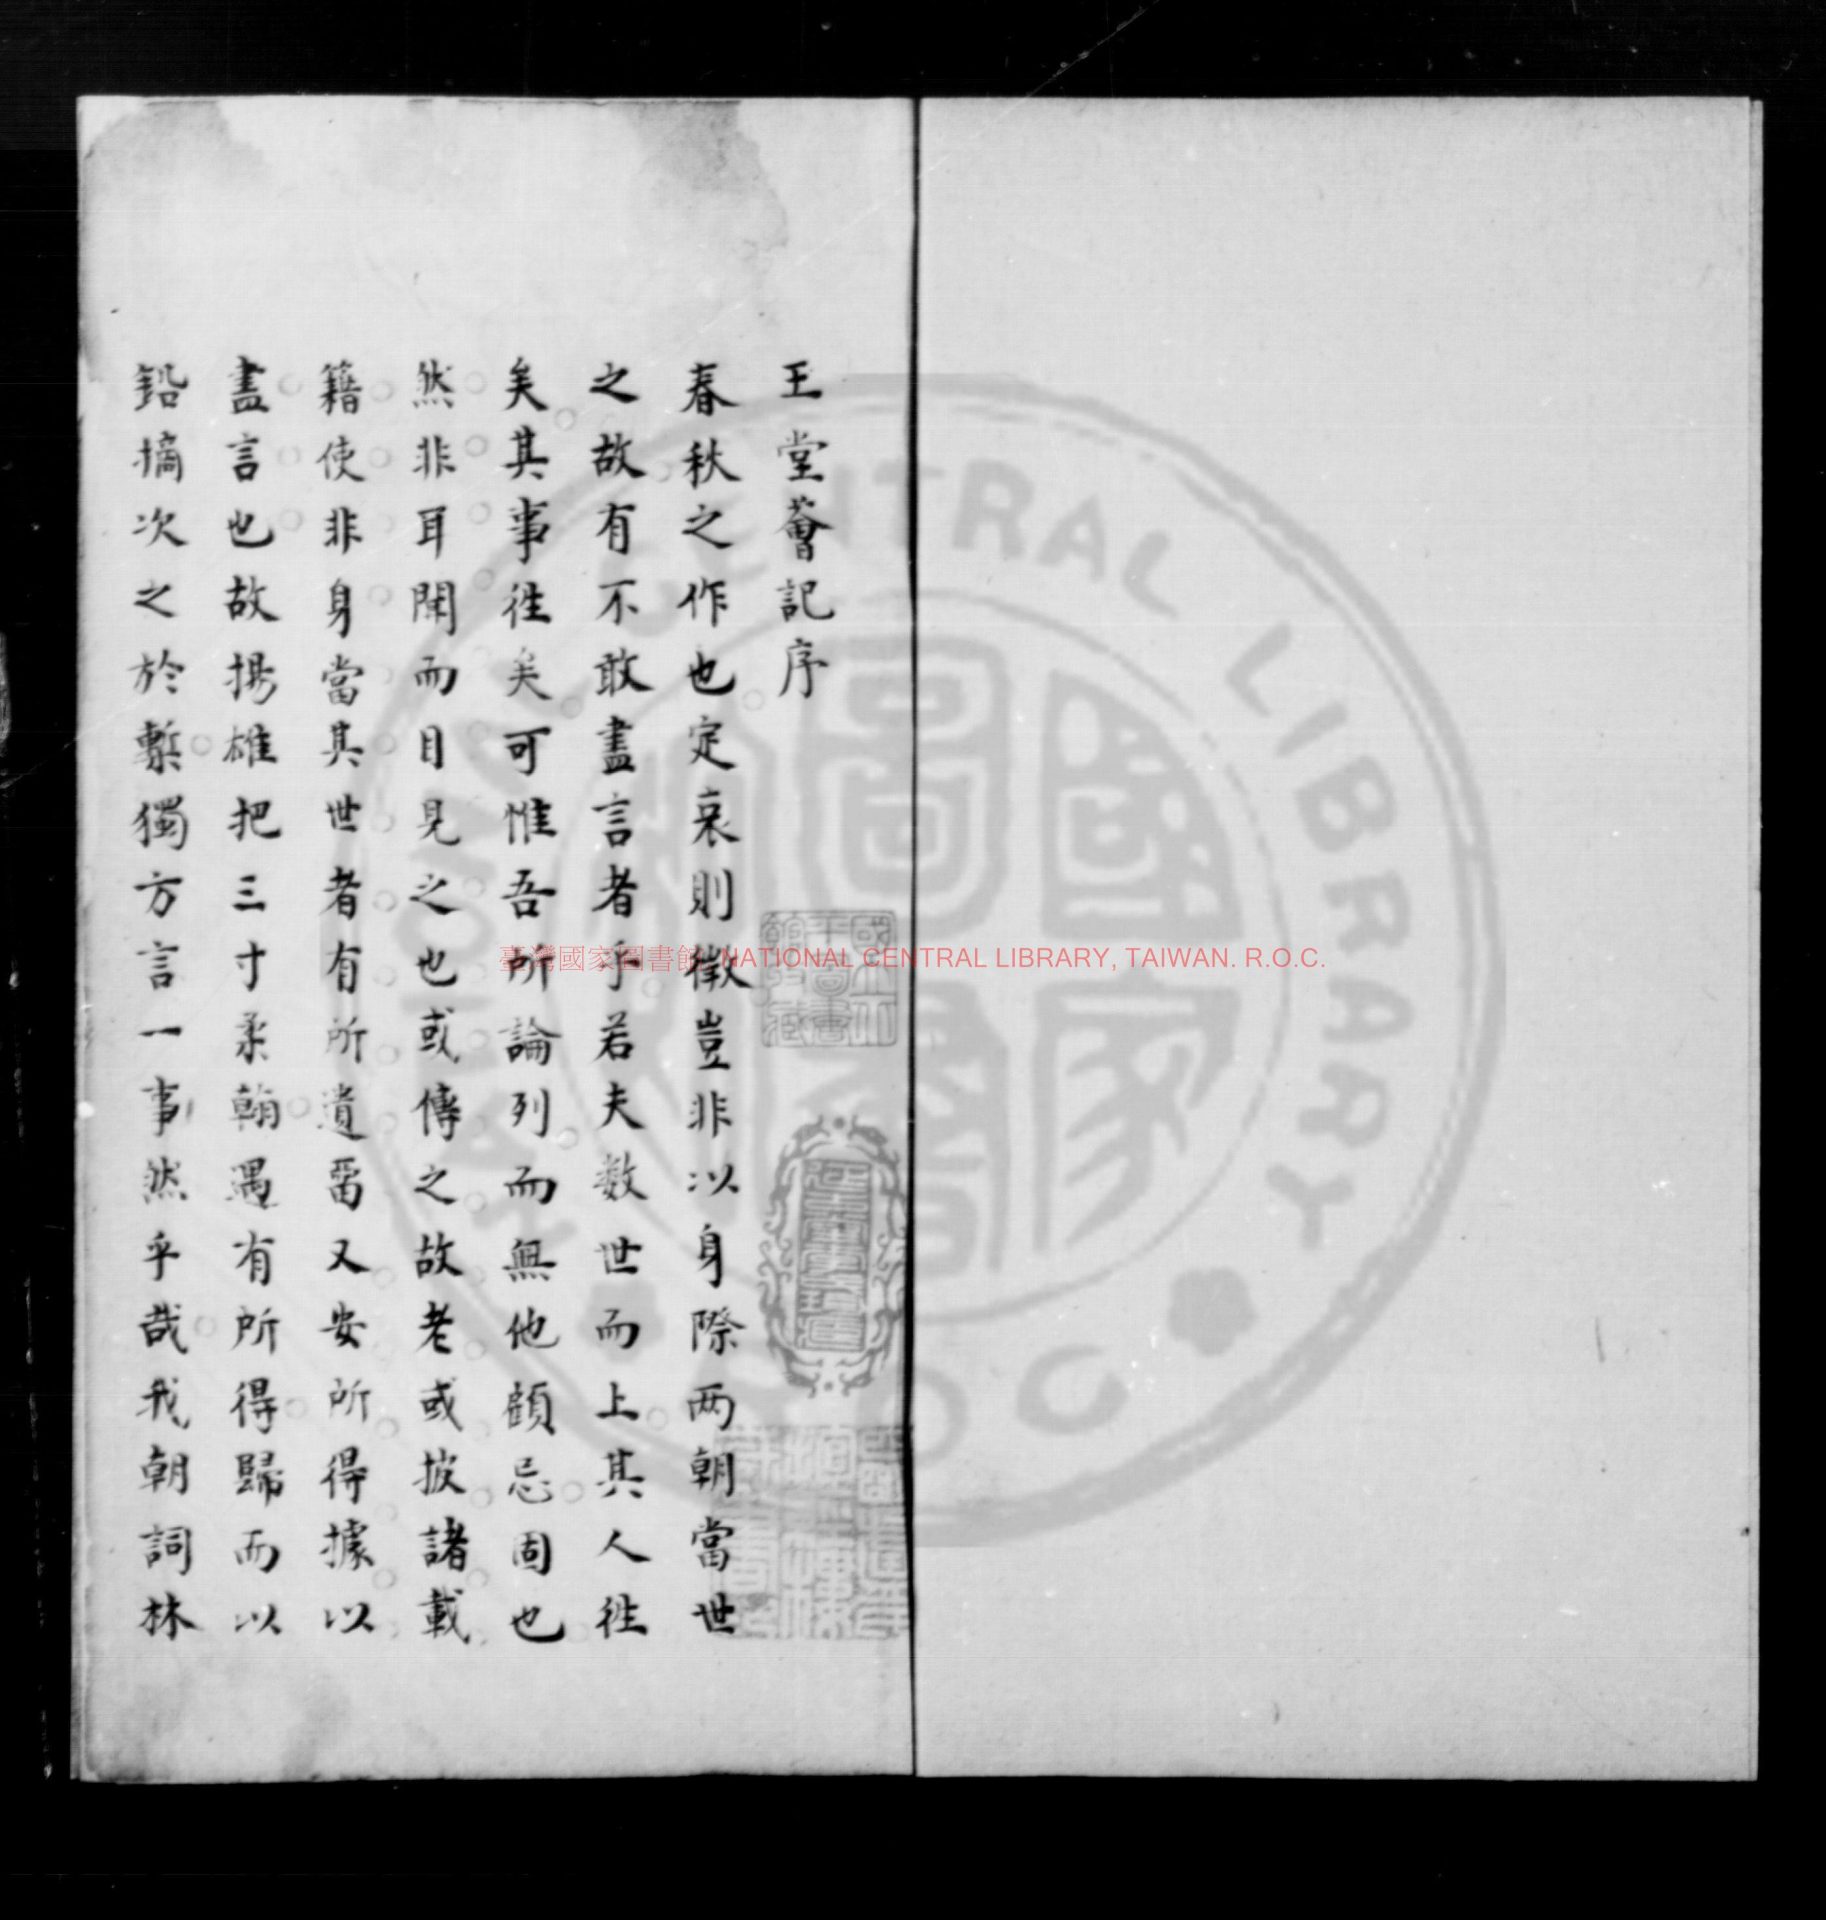 王堂薈記序
春秋之作也定哀則微豈非以身際两朝當世
之故有不敢盡言者乎若夫数世而上其人徃
矣其事徃矣可惟吾所論列而無他顧忌固也
然非耳聞而目見之也或傳之故老或披諸載
籍使非身當其世者有所遺畱又安所得據以
盡言也故揚雄把三寸柔翰遇有所得歸而以
鉛摘次之於槧獨方言一事然乎哉我朝詞林
臺灣國家圖書館 NATIONAL CENTRAL LIBRARY, TAIWAN. R.O.C.